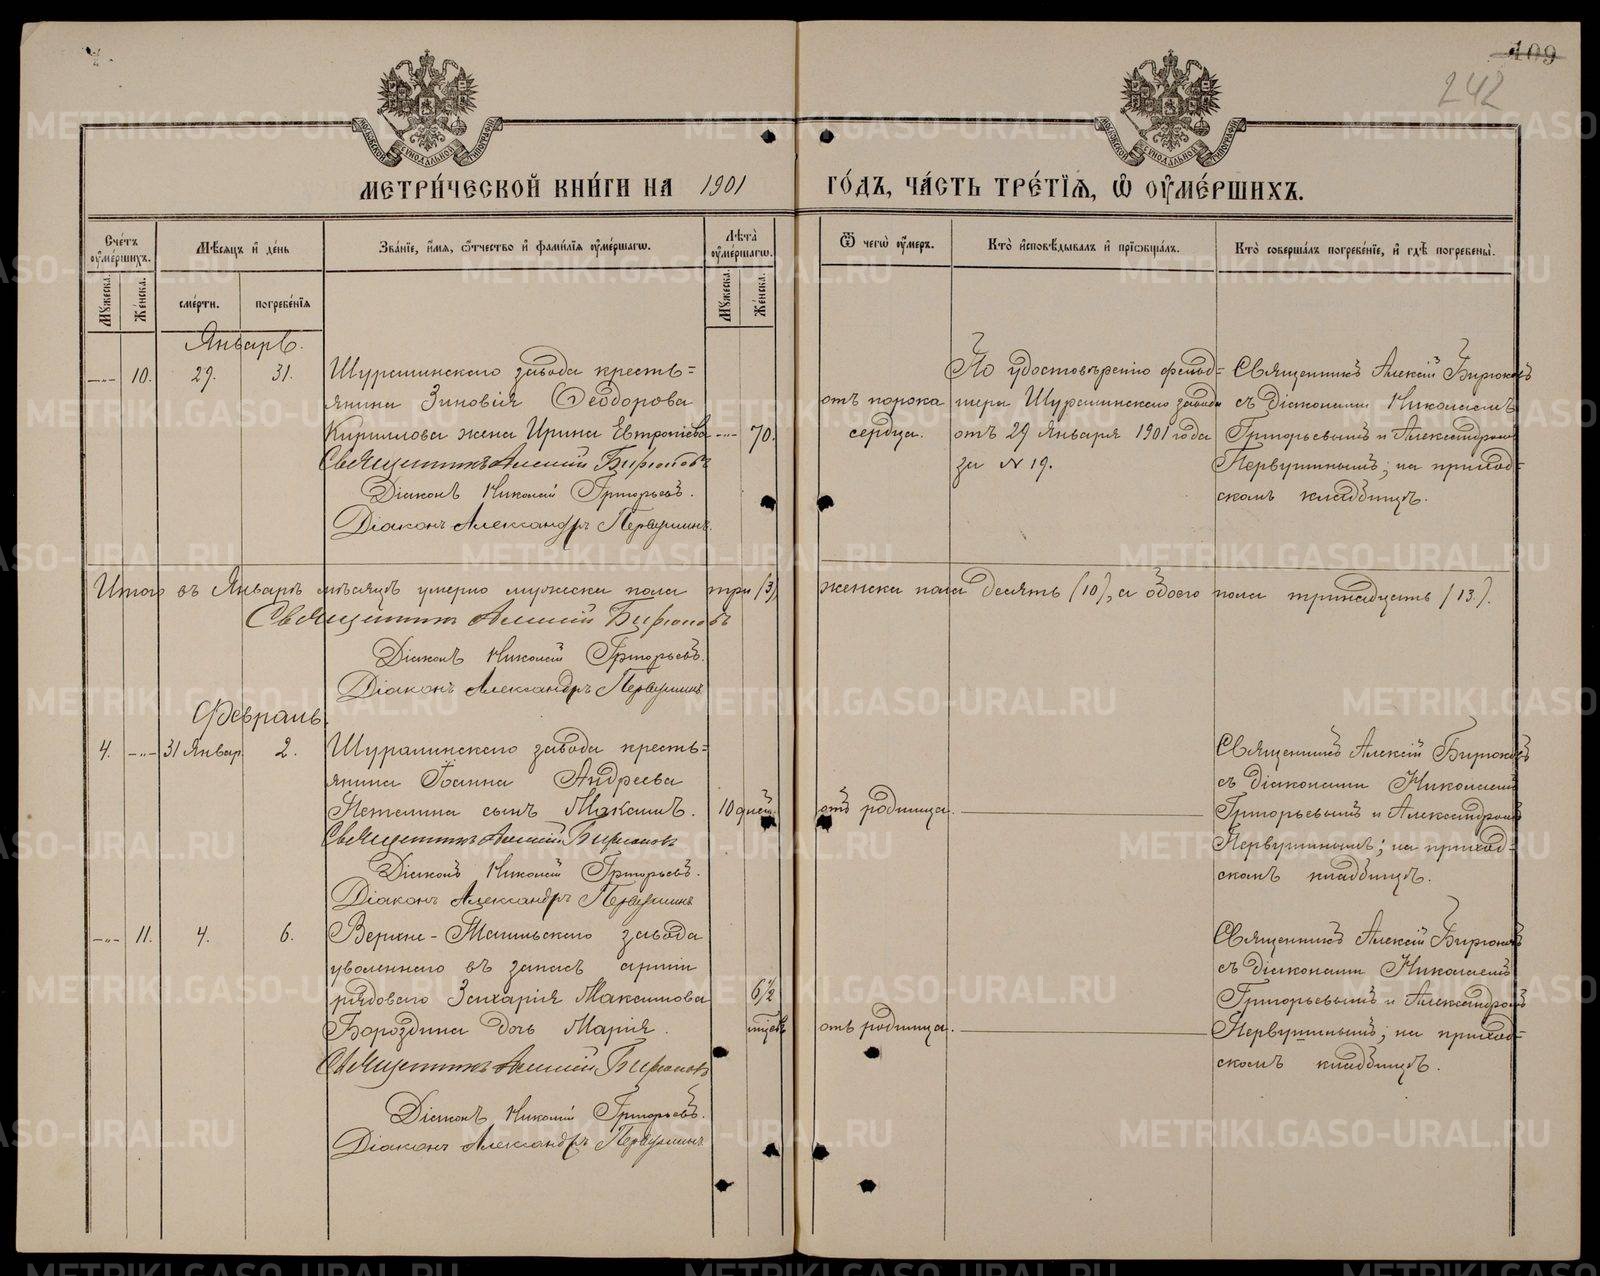 109
242
МЕТРИ́ЧЕСКОЙ КНИ́ГИ НА 1901 ГО́ДЪ, ЧА́СТЬ ТРЕ́ТІѦ, Ѡ҆ ОУ҆МЕ́РШИХЪ.
Сче́тъ оу҆ме́ршихъ.
Мѣ́сяцъ и҆ де́нь
Зва́нїе, и҆́мя, ѻ҆́тчество и҆ фами́лїя оу҆ме́ршагѡ.
Лѣ́та оу҆ме́ршагѡ.
Ѿ чегѡ̀ оу҆́меръ.
Кто̀ и҆сповѣ́дывалъ и҆ прїѡбща́лъ.
Кто̀ соверша́лъ погребе́нїе, и҆ гдѣ̀ погребены̀.
Мꙋ́жеска.
Же́нска.
сме́рти.
погребе́нїѧ
Мꙋ́жеска.
Же́нска.
Январь.
10.
29.
31.
Шуралинскаго завода кресть=
янина Зиновія Ѳеодорова
Кириллова жена Ирина Евтропіева
70.
Священникъ Алексій Бирюковъ
Діаконъ Николай Григорьевъ.
Діаконъ Александръ Первушинъ.
отъ порока
сердца.
По удостовѣренію фельд=
шера Шуралинскаго завода
отъ 29 Января 1901 года
за № 19.
Священникъ Алексій Бирюковъ
съ Діаконами Николаемъ
Григорьевымъ и Александромъ
Первушинымъ; на приход=
скомъ кладбищѣ.
Итого въ Январѣ мѣсяцѣ умерло мужеска пола три (3), женска пола десять (10), а обоего пола тринадцать (13.).
Священникъ Алексій Бирюковъ
Діаконъ Николай Григорьевъ.
Діаконъ Александръ Первушинъ
Февраль.
4.
31 Январ.
2.
Шуралинскаго завода кресть=
янина Іоанна Андреева
Петелина сынъ Максимъ.
10 дней
Священникъ Алексій Бирюковъ
Діаконъ Николай Григорьевъ.
Діаконъ Александръ Первушинъ
отъ родимца.
Священникъ Алексій Бирюковъ
съ Діаконами Николаемъ
Григорьевымъ и Александромъ
Первушинымъ; на приход=
скомъ кладбищѣ.
11.
4.
6.
Верхне-Тагильскаго завода
уволеннаго въ запасъ арміи
рядоваго Захарія Максимова
Бороздина дочь Марія.
6 1/2
мѣсяц
Священникъ Алексій Бирюковъ
Діаконъ Николай Григорьевъ.
Діаконъ Александръ Первушинъ
отъ родимца.
Священникъ Алексій Бирюковъ
съ Діаконами Николаемъ
Григорьевымъ и Александромъ
Первушинымъ; на приход=
скомъ кладбищѣ.
METRIKI.GASO-URAL.RU